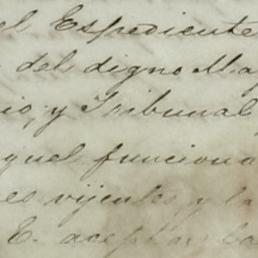 el Expediente
del digno Ma
io, y Tribunal
quel funciona
es vijentes, y la
E. aceptar la